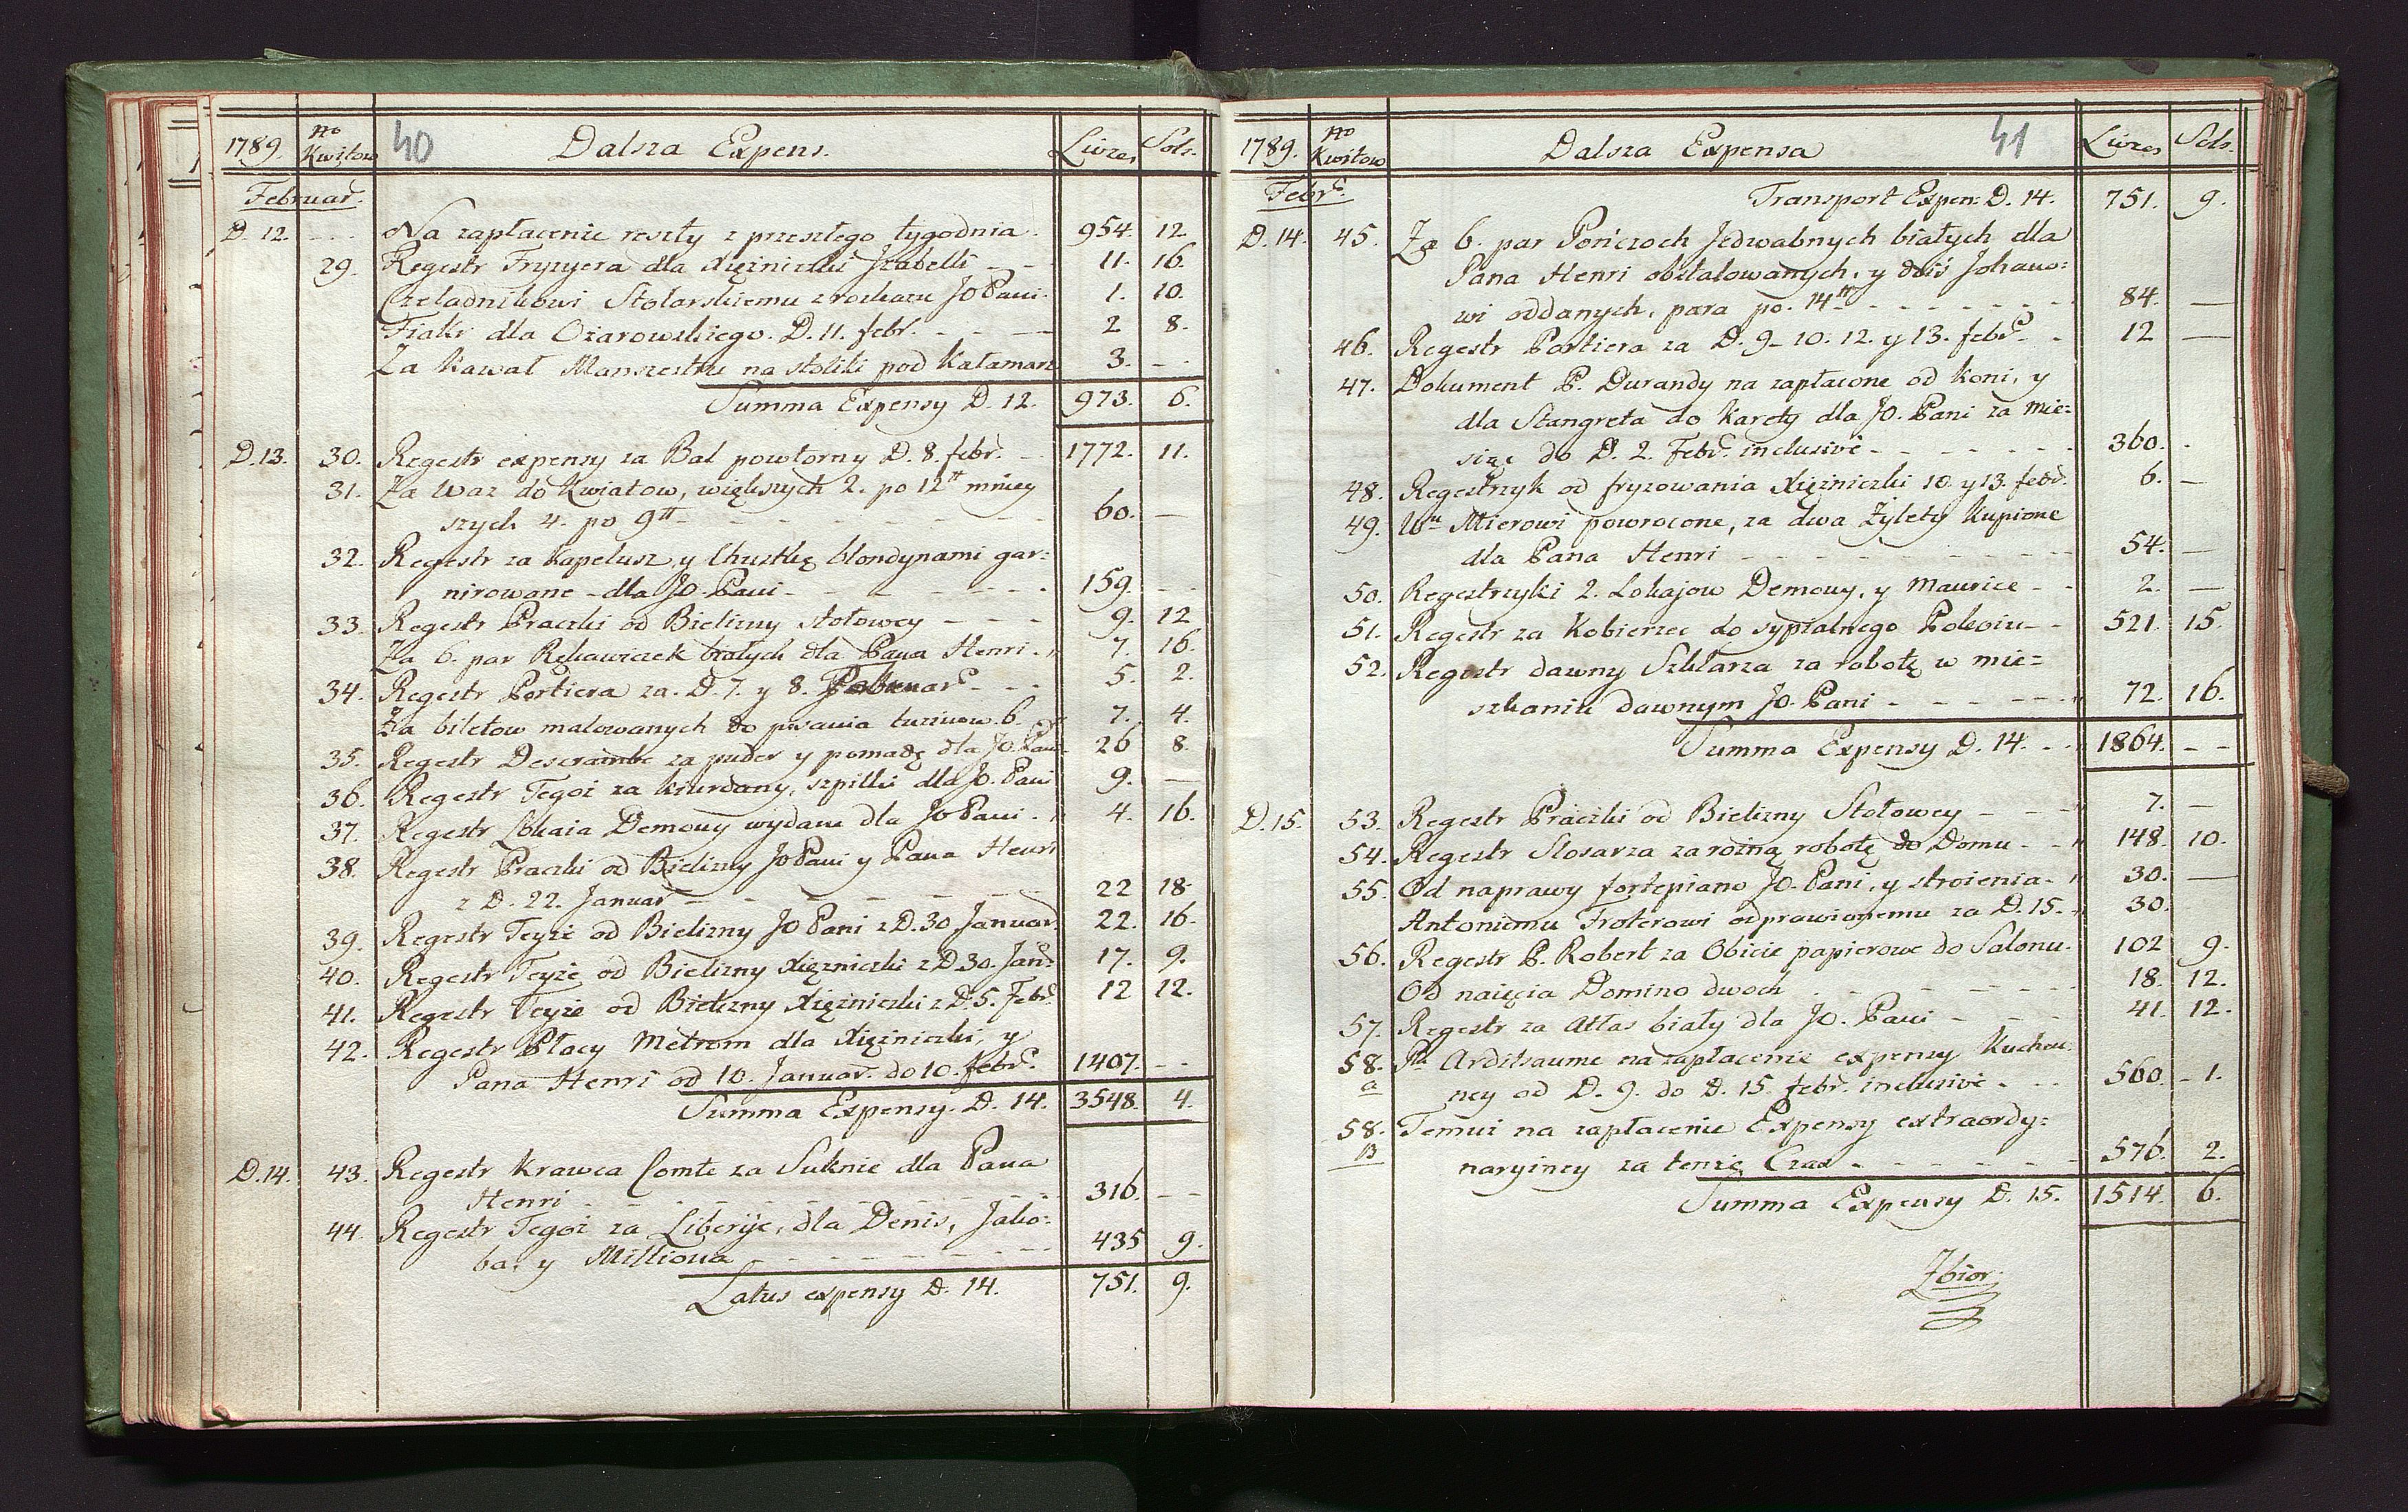 1789. No Kwitow 40 Dalsza Expens. Livres Sols.
Februar.
D. 12. - - - Na zapłacenie reszty z przeszłego tygodnia. 954. 12.
29. Regestr Fryzyera dla Xiężniczki Jzabelli - - - 11. 16.
Czeladnikowi Stolarskiemu z rozkazu JO Pani. 1. 10.
Fiakr dla Ożarowskiego. D. 11. febr. - - - 2 8.
Za Kawał Manszestru na stoliki pod Kałamarz 3. - -
Summa Expensy D. 12. 973. 6.
D. 13. 30. Regestr expensy za Bal powtorny D. 8. febr. - - 1772. 11.
31. Za Waz do Kwiatow, większych 2. po 12tt mniey
szych 4. po 9tt - - - - - - - - 60. —
32. Regestr za Kapelusz, y Chustkę blondynami gar=
nirowane - dla JO. Pani - - - - - - - 159. - -
33. Regestr Praczki od Bielizny stołowey - - - 9. 12
Za 6. par Rękawiczek białych dla Pana Henri. 7. 16.
34. Regestr Portiera za. D. 7. y 8. Februar - - - 5. 2.
Za biletow malowanych do pisania tuzinow. 6. 7. 4.
35. Regestr Descrambe za puder y pomadę dla JO. Pani 26 8.
36. Regestr Tegoż za kiurdany, szpilki dla Jo. Pani 9. —
37. Regestr Lokaia Demouy wydane dla JO Pani - 4. 16.
38. Regestr Praczki od Bielizny JO Pani y Pana Henri
z D. 22. Januar - - - - - - - 22 18
39. Regestr Teyże od Bielizny JO Pani z D. 30 Januar 22. 16.
40. Regestr Teyże od Bielizny Xiężniczki z D 30. Jan: 17. 9.
41. Regestr Teyże od Bielizny Xiężniczki z D. 5. Febr. 12 12.
42. Regestr Płacy Metrom dla Xiężniczki, y
Pana Henri od 10. Januar. do 10. febr. 1407. - -
Summa Expensy. D. 14. 3548. 4.
D. 14. 43. Regestr Krawca Comte za Suknie dla Pana
Henri - - - - - - - - 316. - -
44. Regestr Tegoż za Liberije, dla Denis, Jako=
ba, y Milliona - - - - - - - - 435 9.
Latus expensy D. 14. 751. 9.
1789. No Kwitow Dalsza Expensa 41 Livres Sols.
Febr.
Transport Expen: D. 14. 751. 9.
D. 14. 45. Za 6. par Pończoch Jedwabnych białych dla
Pana Henri obstalowanych, y dziś Johano=
wi oddanych, para po. 14tt - - - - - - - 84. —
46. Regestr Portiera za D. 9- 10. 12. y 13. febr. - 12 —
47. Dokument P. Durandy na zapłacone od Koni, y
dla Stangreta do Karety dla JO. Pani za mie=
siąc do D. 2. Febr. inclusive - - - - - - 360. -
48. Regestrzyk od fryzowania Xiężniczki 10. y 13. febr. 6. —
49. Wu Mierowi powrocone, za dwa Żylety Kupione
dla Pana Henri - - - - - - - - 54. —
50. Regestrzyki 2. Lokajow Demouy, y Maurice - - 2. —
51. Regestr za Kobierzec do sypialnego Pokoiu - - 521. 15.
52. Regestr dawny Szklarza za robotę w mie=
szkaniu dawnym JO. Pani - - - - - - 72. 16.
Summa Expensy D. 14. - - 1864. - -
D. 15. 53. Regestr Praczki od Bielizny Stołowey - - - 7. —
54. Regestr Slosarza za rożną robotę do Domu - - 148. 10.
55. Od naprawy fortepiano JO. Pani, y stroienia - 30. —
Antoniemu Froterowi odprawionemu za D. 15. - 30.
56. Regestr P. Robert za Obicie papierowe do Salonu. 102 9.
Od naięcia Domino dwoch - - - - - - 18. 12.
57. Regestr za Atłas biały dla JO. Pani - - - 41. 12.
58. a Pu Arditsaume na zapłacenie expensy Kuchen:
ney od D. 9. do D. 15. febr. inclusive - - - 560. - 1.
58. B Temuż na zapłacenie Expensy extraordy=
naryiney za tenże Czas - - - - - - 576. 2.
Summa Expensy D. 15. 1514. 6.
Zbior.